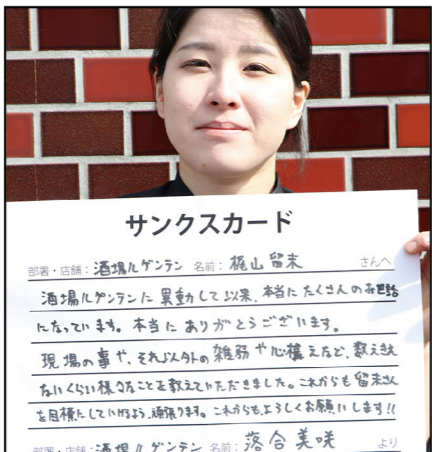 サンクスカード
部署・店舗：酒場ルゲンテン 名前：梶山 留末 さんへ
酒場ルゲンテンに異動して以来、本当にたくさんのお世話
になっています。本当にありがとうございます。
現場の事や、それ以外の雑務や心構えなど、数えきれ
ないくらい様々なことを教えていただきました。これからも留末さん
を目標にしていけるよう、頑張ります。これからもよろしくお願いします!!
部署・店舗：酒場ルゲンテン 名前：落合 美咲 より